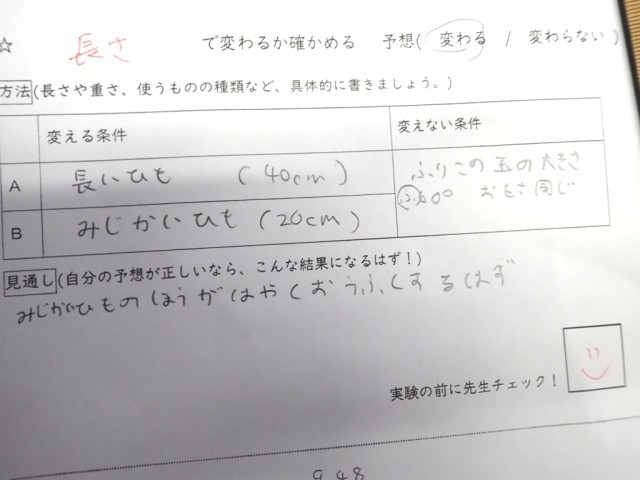 ☆ 長さ で変わるか確かめる 予想( 変わる / 変わらない )
方法(長さや重さ、使うものの種類など、具体的に書きましょう。)
変える条件 変えない条件
A 長いひも (40cm) ふりこの玉の大きさ
おもさ同じ
B みじかいひも (20cm)
見通し(自分の予想が正しいなら、こんな結果になるはず！)
みじかいひものほうがはやくおうふくするはず
実験の前に先生チェック！